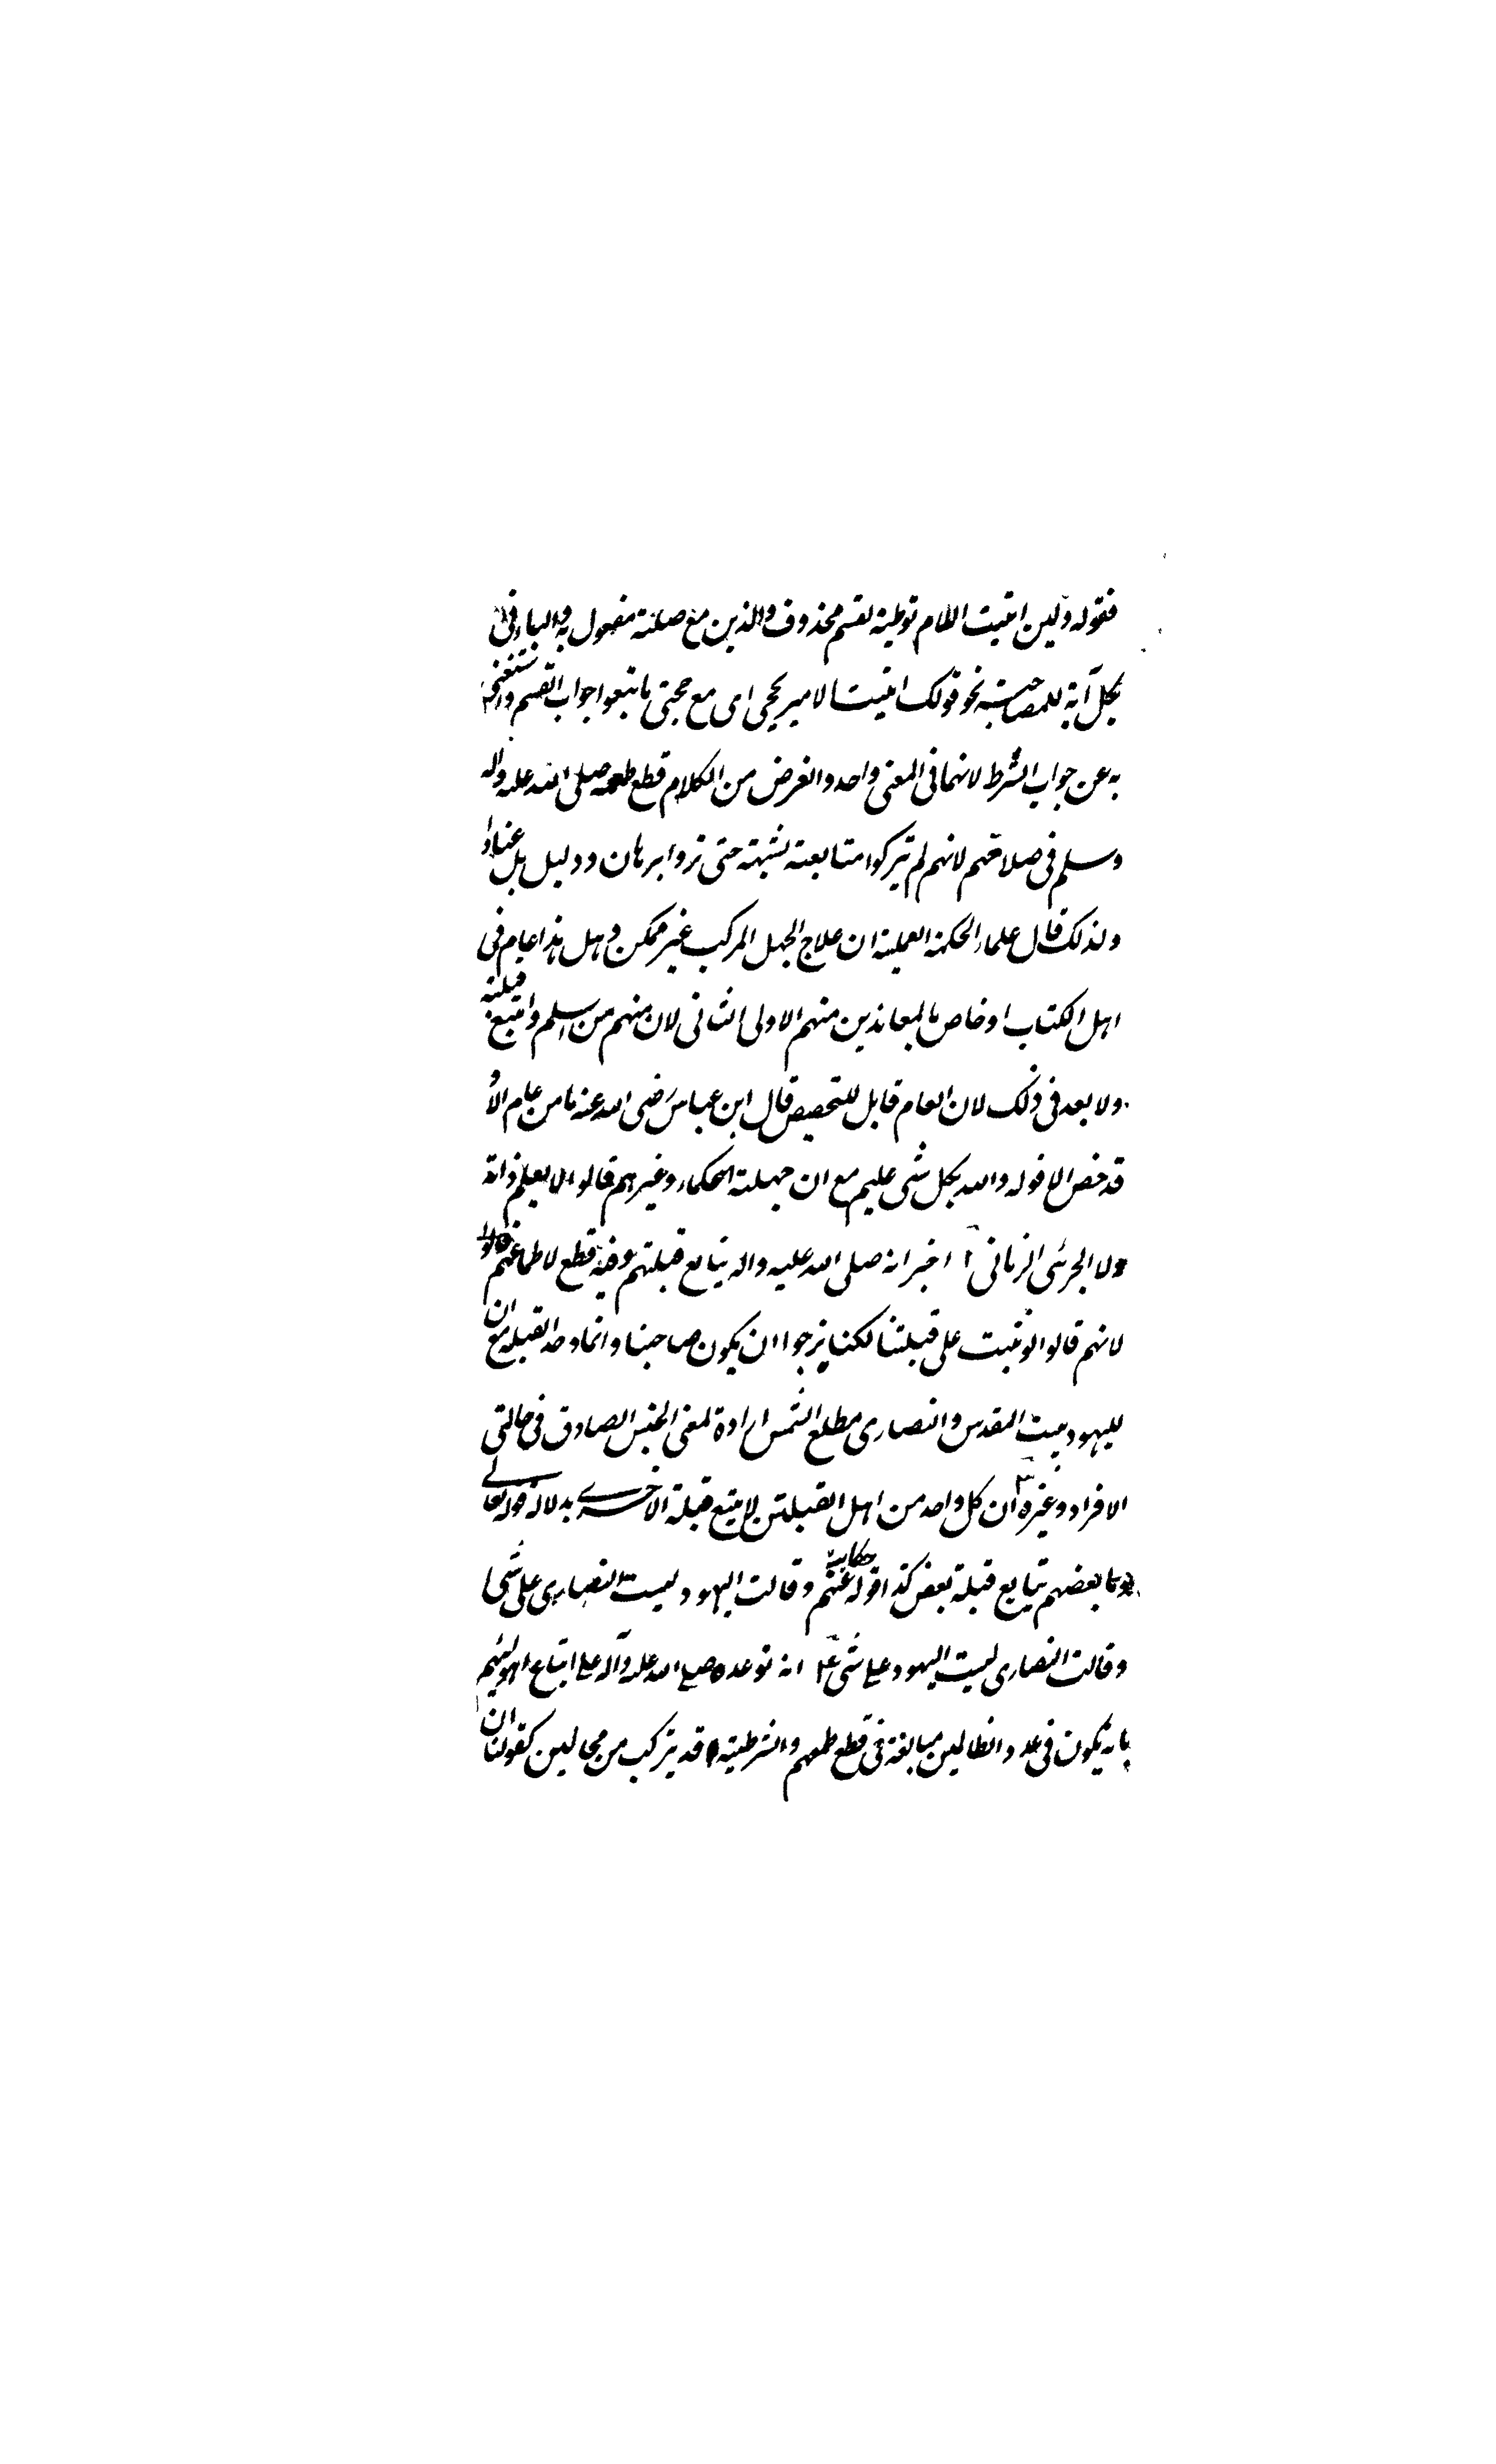 فقوله ولين اتيت اللام توطية لقسم محذوف والذين مع صلته مفعول به والباء في
بكل آية للمصاحبة نحو قولك اتيت الامير بحجتي اى مع حجتي ما تبعوا جواب القسم واستغنى
به عن جواب الشرط لانهما في المعنى واحد والغرض من الكلام قطع طمعه صلى الله عليه واله
وسلم في صلاتهم لانهم لم تيركوا متابعته بشبهة حتى تزوا ببرهان ودليل بل عنادا
ولذلك قال علماء الحكمة العملية ان علاج الجهل المركب غير ممكن وهل هذا عام في
اهل الكتاب او خاص بالمعاندين منهم الاولى الثاني لان منهم من اسلم واتبع قبلته
ولا بعد في ذلك لان العام قابل للتخصيص قال ابن عباس رضى الله عنه ما من عام الا و
قد خص الا قوله والله بكل شى عليم مع ان جهلة الحكماء وغيرهم قالوا لا يعلم ذاته
ولا الجزئى الزمانى اخبر انه صلى الله عليه واله يتابع قبلتهم وفيه قطع لاطماعهم
لانهم قالوا لو ثبت على قبلتنا لكنا نرجوا ان يكون صاحبنا وانما وحد القبلة مع ان
لليهود بيت المقدس والنصارى مطلع الشمس ارادة لمعنى الجنس الصادق في حالتى
الافراد وغيره ان كل واحد من اهل القبلتين لا يتبع قبلة الاخرى بدلالة قوله تعالى
وما بعضهم بتابع قبلة بعض كذا قوله حكاية عنهم وقالت اليهود ليست النصارى على شى
وقالت النصارى ليست اليهود على شى انه توعده صلى الله عليه وآله على اتباع اهوائهم
بانه يكون في عدد الظالمين مبالغة في قطع طمعهم والشرطية قد يتركب من محالين كقولنا ان